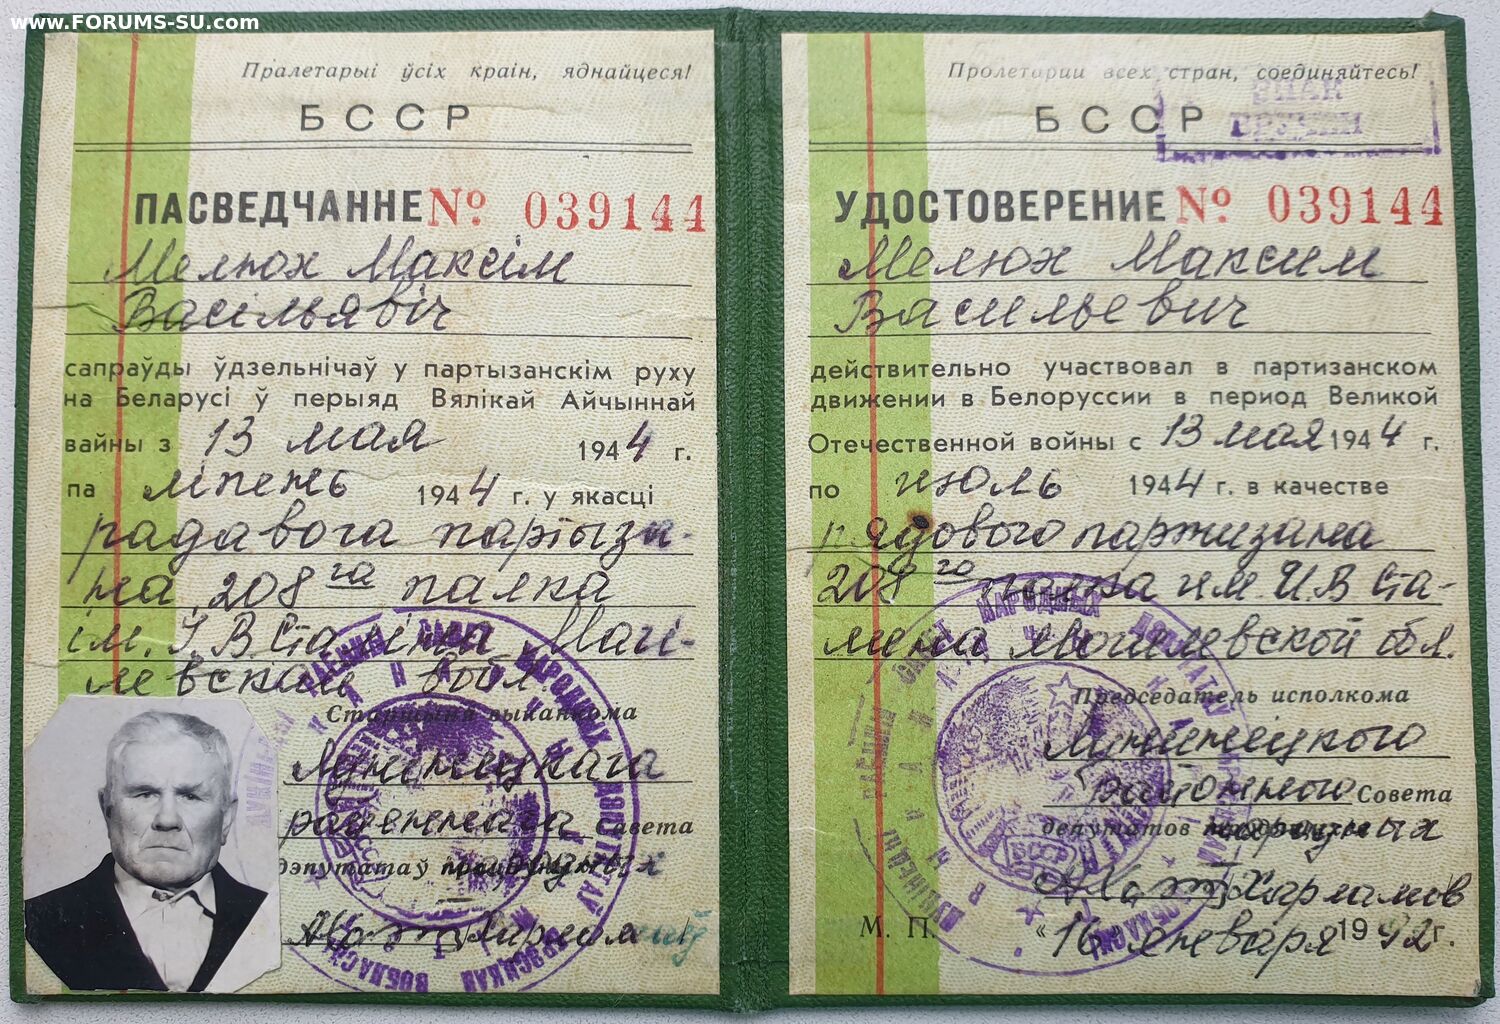 www.FORUMS-SU.com
Пралетарыі ўсіх краін, яднайцеся!
БССР
ПАСВЕДЧАННЕ № 039144
Мелюх Максім
Васільявіч
сапраўды ўдзельнічаў у партызанскім руху
на Беларусі ў перыяд Вялікай Айчыннай
вайны з 13 мая 1944 г.
па ліпень 1944 г. у якасці
радавога партыза-
на 208га палка
ім. І.В. Сталіна Магі-
лёвскай вобл.
Старшыня выканкома
Лунінецкага
раённага Савета
дэпутатаў
Харламаў
Пролетарии всех стран, соединяйтесь!
БССР
ЗНАК
ВРУЧЕН
УДОСТОВЕРЕНИЕ № 039144
Мелюх Максим
Васильевич
действительно участвовал в партизанском
движении в Белоруссии в период Великой
Отечественной войны с 13 мая 1944 г.
по июль 1944 г. в качестве
рядового партизана
208го полка им. И.В. Ста-
лина Могилевской обл.
Председатель исполкома
Лунинецкого
районного Совета
депутатов
Харламов
М. П. «16» января 1992 г.